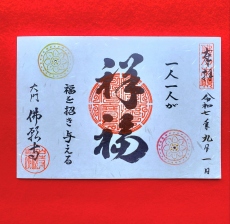 奉拝
令和七年九月一日
一人一人が
祥福
福を招き与える
大門
佛願寺